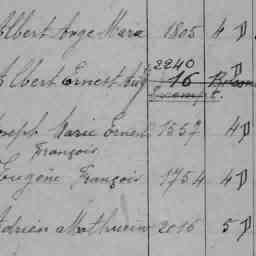 Albert Ange Marie 1805 4 D
Albert Ernest Aug 2240 D
16
Exempt.
Joseph Marie Ernest 1557 4 D
François
Eugène François 1754 4 D
Adrien Mathurin 2016 5 D